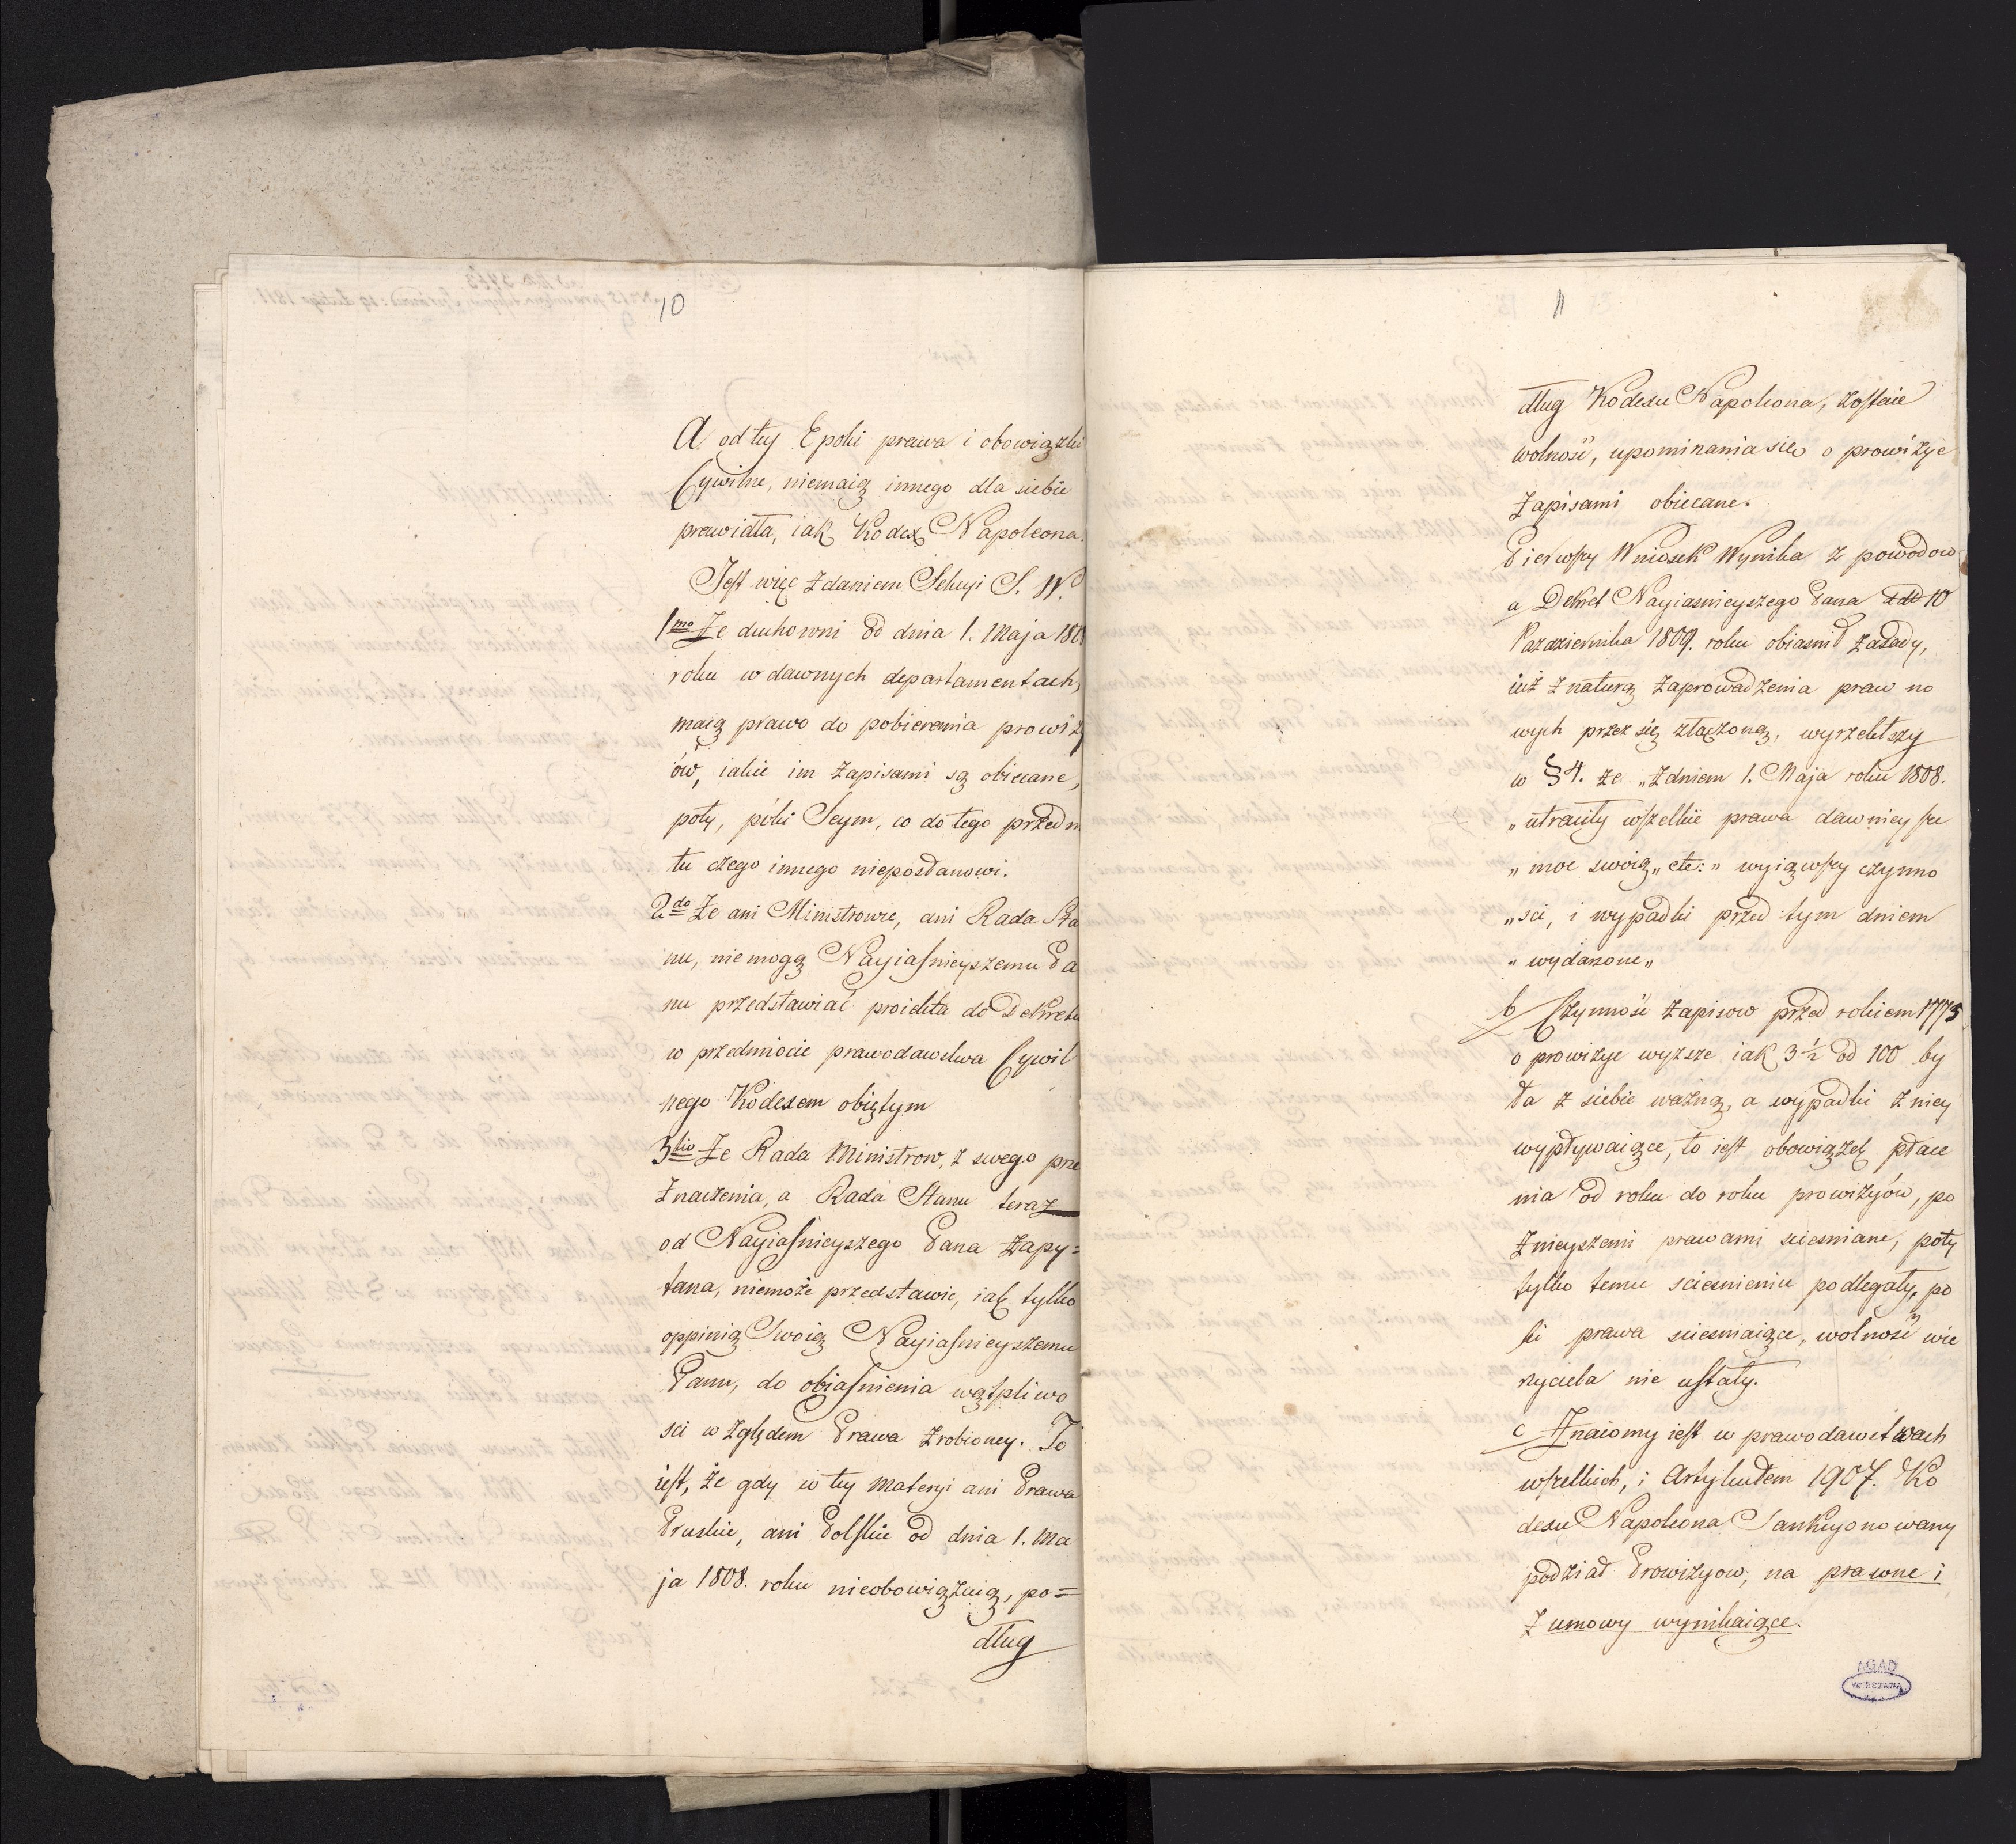 10
A od tey Epoki prawa i obowiązki
Cywilne, niemaią innego dla siebie
prawidła, iak Kodex Napoleona.
Jest więc zdaniem Sekcyi S. W.
1mo Że duchowni od dnia 1. Maja 180
roku w dawnych departamentach,
maią prawo do pobierania prowizy
ów, iakie im zapisami są obiecane,
poty, póki Seym, co do tego przedm
tu czego innego niepostanowi.
2do Że ani Ministrowie, ani Rada Sta
nu, nie mogą Nayiasnieyszemu Pa
nu przedstawiać proiekta do Dekretu
w przedmiocie prawodawstwa Cywil
nego Kodexem obiętym
3tio Że Rada Ministrow, z swego prze
znaczenia, a Rada Stanu teraz
od Nayiasnieyszego Pana zapy=
tana, niemoże przedstawic, iak tylko
oppinią Swoią Nayiasnieyszemu
Panu, do obiasnienia wątpliwo
sci względem Prawa zrobioney. To
iest, że gdy w tey materyi ani Prawa
Pruskie, ani Polskie od dnia 1. Ma
ja 1808. roku nieobowiązuią, po=
dług
11
dług Kodexu Napoleona, zostaie
wolność, upominania się o prowizye
zapisami obiecane.
Pierwszy Wniosek Wynika z powodow
a Dekret Nayiasnieyszego Pana z d 10
Pazdziernika 1809. roku obiasnił zasady,
iuż z naturą zaprowadzenia praw no
wych przez się złączoną, wyrzekłszy
w § 4. że „z dniem 1. Maja roku 1808.
„ utraciły wszelkie prawa dawnieysze
„ moc swoią „ etc: „ wyiąwszy czynno
„ sci, i wypadki przed tym dniem
„ wydarzone „
b Czynność zapisow przed rokiem 1775
o prowizye wyższe iak 3 1/2 od 100 by
ła z siebie ważną, a wypadki z niey
wypływaiące, to iest obowiązek płace
nia od roku do roku prowizyów, po
znieyszemi prawami sciesniane, poty
tylko temu sciesnieniu podlegały, po
ki prawa sciesniaiące, wolność wie
rzyciela nie ustały.
c Znaiomy iest w prawodawstwach
wszelkich, i Artykułem 1907. Ko
dexu Napoleona Sankcyonowany
podział Prowizyow, na prawne i
z umowy wynikaiące.
AGAD
WARSZAWA